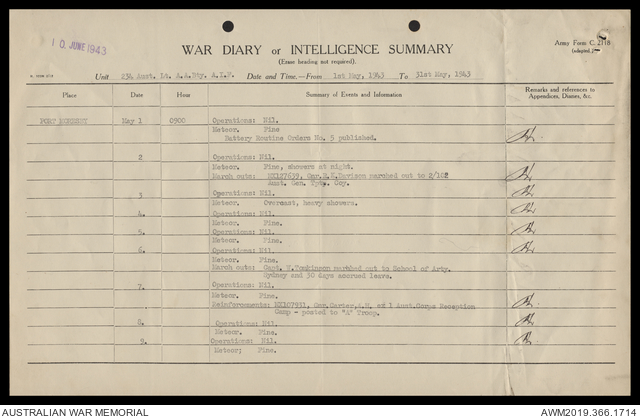 10 JUNE 1943
WAR DIARY or INTELLIGENCE SUMMARY
(Erase heading not required).
Army Form C. 2118
(adapted.)
Unit 234 Aust. Lt. A.A.Bty. A.I.F. Date and Time.—From 1st May, 1943 To 31st May, 1943
Place Date Hour Summary of Events and Information Remarks and references to
Appendices, Diaries, &c.
PORT MORESBY May 1 0900 Operations: Nil.
Meteor. Fine
Battery Routine Orders No. 5 published.
2 Operations: Nil.
Meteor. Fine, showers at night.
March out: Gnr. marched out to 2/102
Aust. Gen. Tpt. Coy.
3 Operations: Nil.
Meteor. Overcast, heavy showers.
4. Operations: Nil.
Meteor. Fine.
5. Operations: Nil.
Meteor. Fine.
6. Operations: Nil.
Meteor. Fine.
March out: Capt. W.Tomkinson marbhed out to School of Arty.
Sydney and 30 days accrued leave.
7. Operations: Nil.
Meteor. Fine.
Reinforcements: NX107951, Gnr.Carter,A.W. ex 1 Aust.Corps Reception
Camp - posted to "A" Troop.
8. Operations: Nil.
Meteor. Fine.
9. Operations: Nil.
Meteor; Fine.
AUSTRALIAN WAR MEMORIAL
AWM2019.366.1714